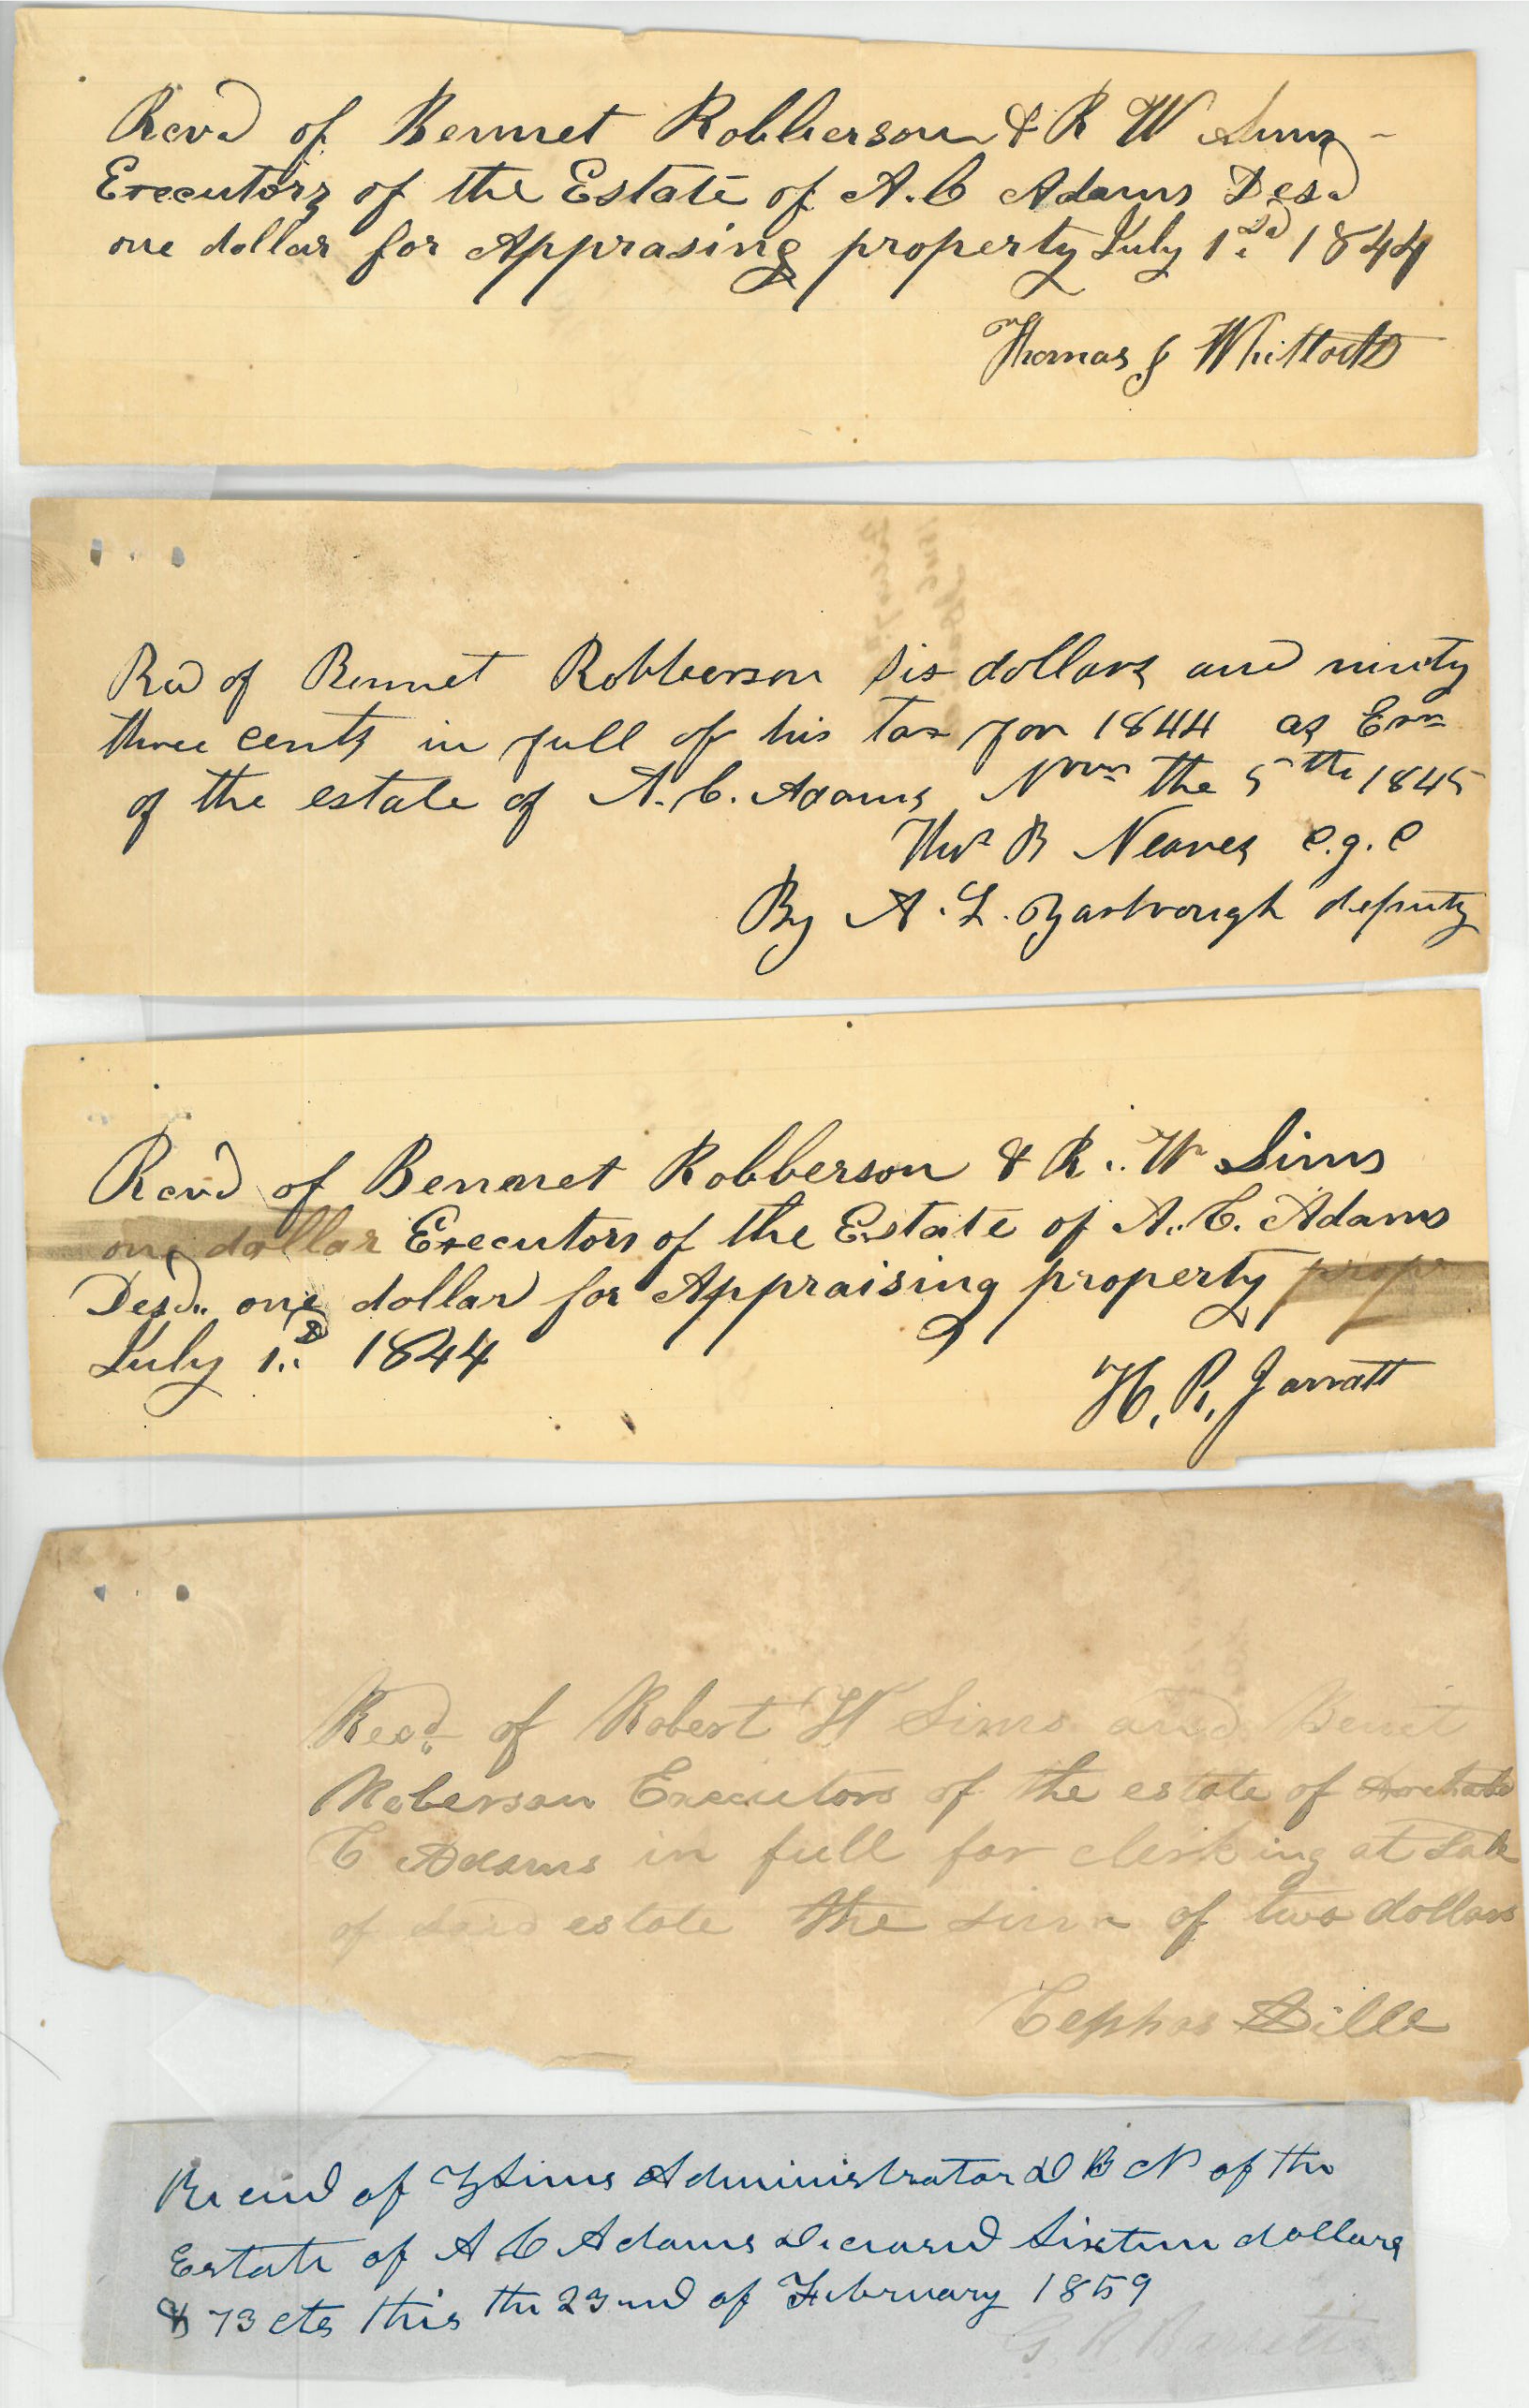 Recvd of Bennet Robberson & R W Sims
Executors of the Estate of A. C Adams Desd
one dollar for Apprasing property July 1sd 1844
Thomas J Whitlock
Recd of Bennet Robberson six dollars and ninty
three cents in full of his tax for 1844 as Exr
of the estate of A. C. Adams Novm the 5th 1845
Thos B Neaves C.G.C
By A. L. Yarbrough deputy
Recvd of Bennet Robberson & R. W Sims
one dollar Executors of the Estate of A. C. Adams
Desd. one dollar for Appraising property prope
July 1.sd 1844
H. R. Jarratt
Recd. of Robert W Sims and Benet
Roberson Executors of the estate of
C Adams in full for clerking at Sale
of said estate the sum of two dollars
Cephas Sille
Receivd of Z Sims Administrator D B N of the
Estate of A C Adams Deceased Sixteen dollars
& 73 cts this the 23nd of February 1859
G R Barrett